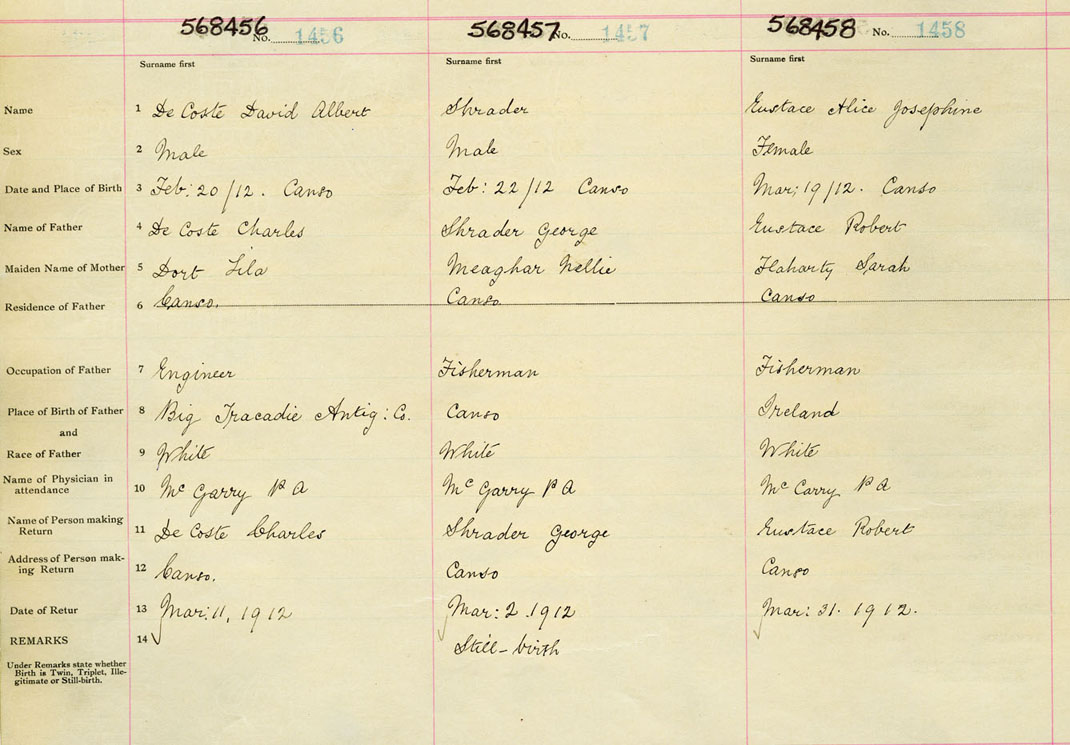 568456 No. 1456 568457 No. 1457 568458 No. 1458
Surname first Surname first Surname first
Name 1 De Coste David Albert Shrader Eustace Alice Josephine
Sex 2 Male Male Female
Date and Place of Birth 3 Feb: 20/12. Canso Feb: 22/12 Canso Mar; 19/12. Canso
Name of Father 4 De Coste Charles Shrader George Eustace Robert
Maiden Name of Mother 5 Dort Lila Meaghar Nellie Flaharty Sarah
Residence of Father 6 Canso. Canso Canso
Occupation of Father 7 Engineer Fisherman Fisherman
Place of Birth of Father 8 Big Tracadie Antig: Co. Canso Ireland
and
Race of Father 9 White White White
Name of Physician in
attendance 10 Mc Garry P A Mc Garry P A Mc Carry P A
Name of Person making
Return 11 De Coste Charles Shrader George Eustace Robert
Address of Person mak-
ing Return 12 Canso. Canso Canso
Date of Retur 13 Mar: 11, 1912 Mar: 2. 1912 Mar: 31. 1912.
REMARKS 14 Still-birth
Under Remarks state whether
Birth is Twin, Triplet, Ille-
gitimate or Still-birth.